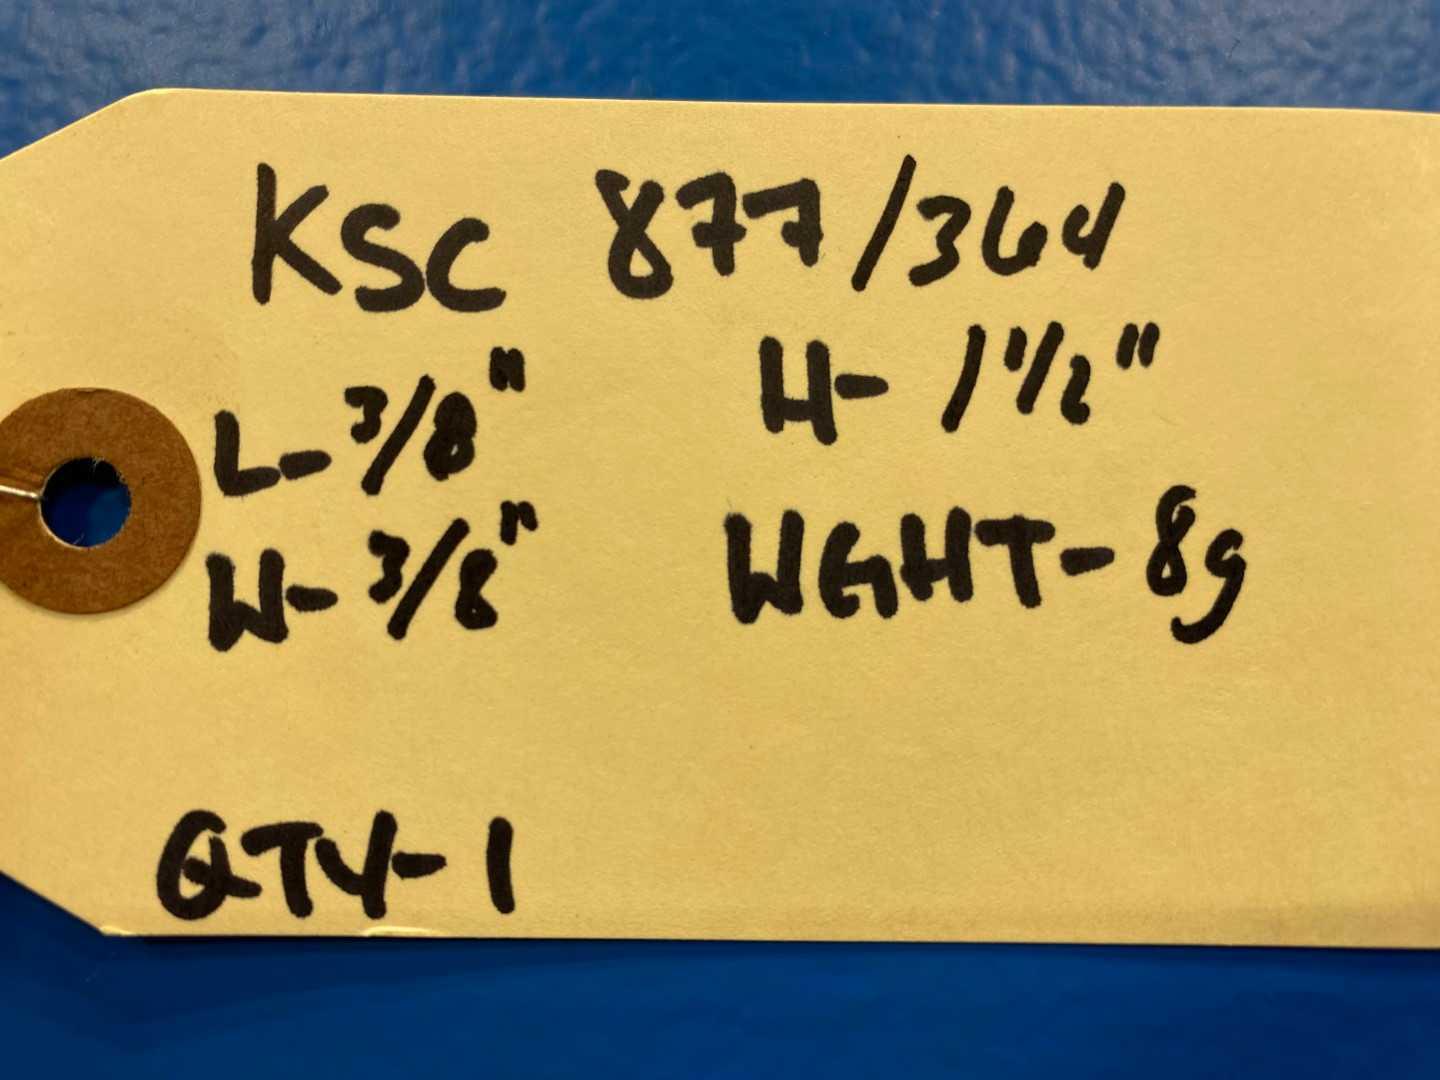 KSC 877/364
L- 3/8" H- 1 1/2"
W- 3/8" WGHT- 8g
QTY- 1